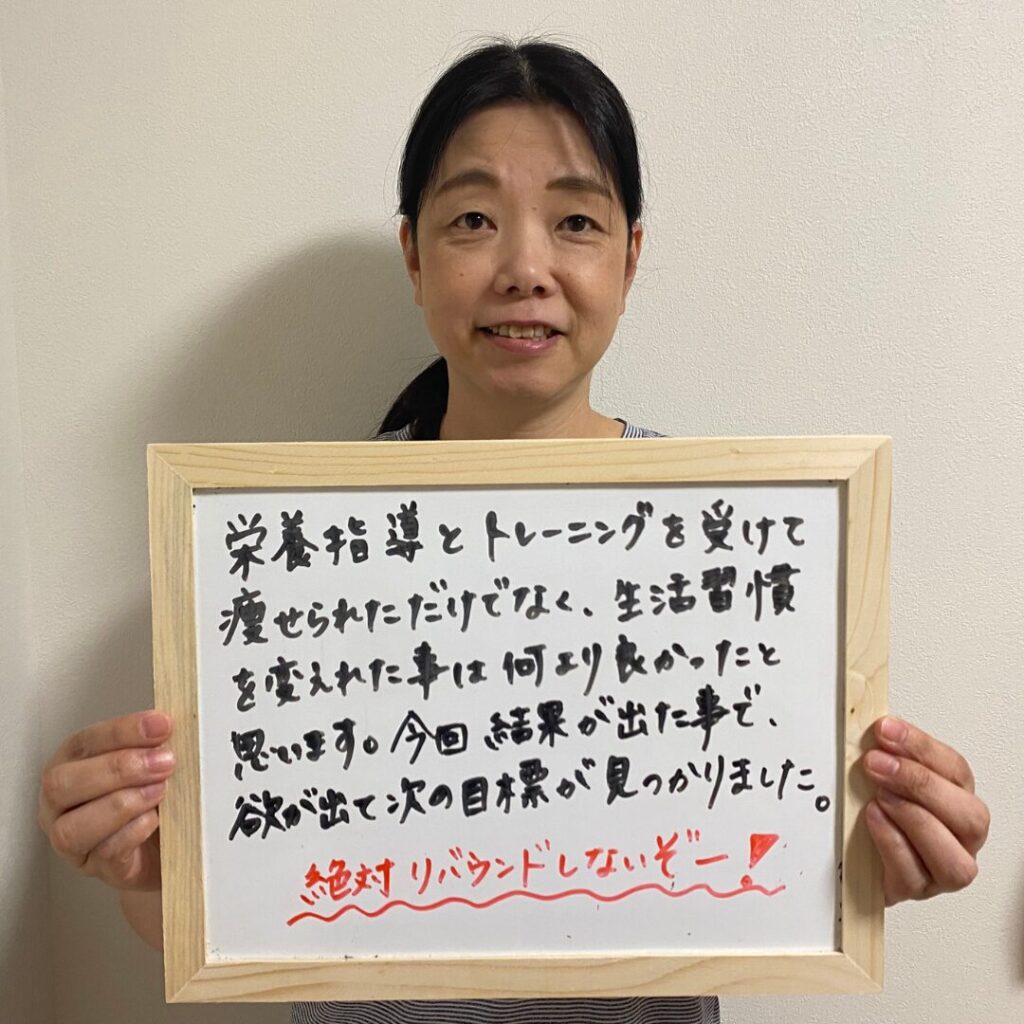 栄養指導とトレーニングを受けて
痩せられただけでなく、生活習慣
を変えれた事は何より良かったと
思います。今回結果が出た事で、
欲が出て次の目標が見つかりました。
絶対リバウンドしないぞー！